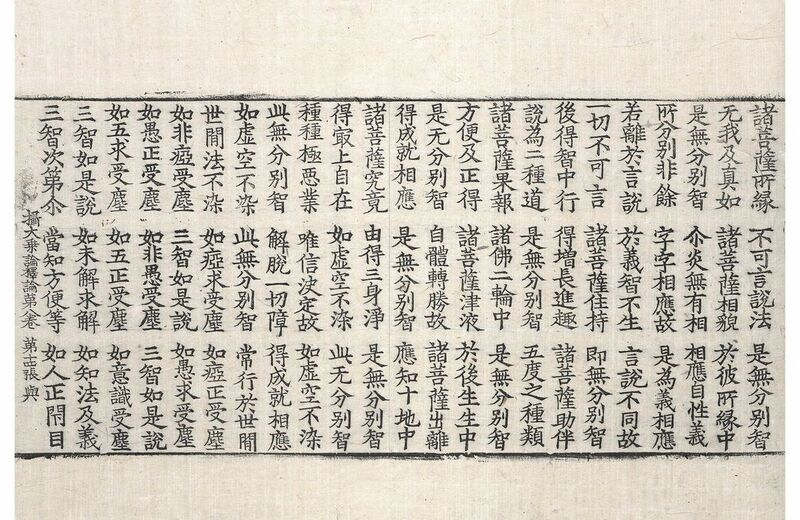 諸菩薩所緣 不可言說法 是無分別智
无我及真如 諸菩薩相貌 於彼所緣中
是無分別智 尒炎無有相 相應自性義
所分別非餘 字字相應故 是為義相應
若離於言說 於義智不生 言說不同故
一切不可言 諸菩薩住持 即無分別智
後得智中行 得增長進趣 諸菩薩助伴
說為二種道 是無分別智 五度之種類
諸菩薩果報 諸佛二輪中 是無分別智
方便及正得 諸菩薩津液 於後生生中
是无分別智 自體轉勝故 諸菩薩出離
得成就相應 是無分別智 應知十地中
諸菩薩究竟 由得三身淨 是無分別智
得㝡上自在 如虛空不染 此无分別智
種種極悪業 唯信決定故 如虛空不染
此無分別智 解脫一切障 得成就相應
如虛空不染 此無分別智 常行於世間
世間法不染 如瘂求受塵 如瘂正受塵
如非瘂受塵 三智如是說 如愚求受塵
如愚正受塵 如非愚受塵 三智如是說
如五求受塵 如五正受塵 如意識受塵
三智如是說 如未解求解 如知法及義
三智次第尒 當知方便等 如人正閇目
攝大乘論釋論第八卷 第十二張 與